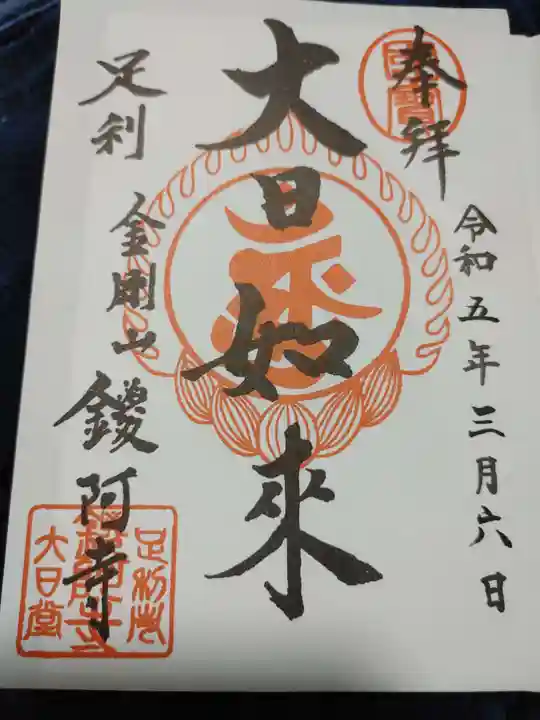 奉拝
令和五年三月六日
大日如來
足利
金剛山
鑁阿寺
國寶
足利市
鑁阿寺
大日堂